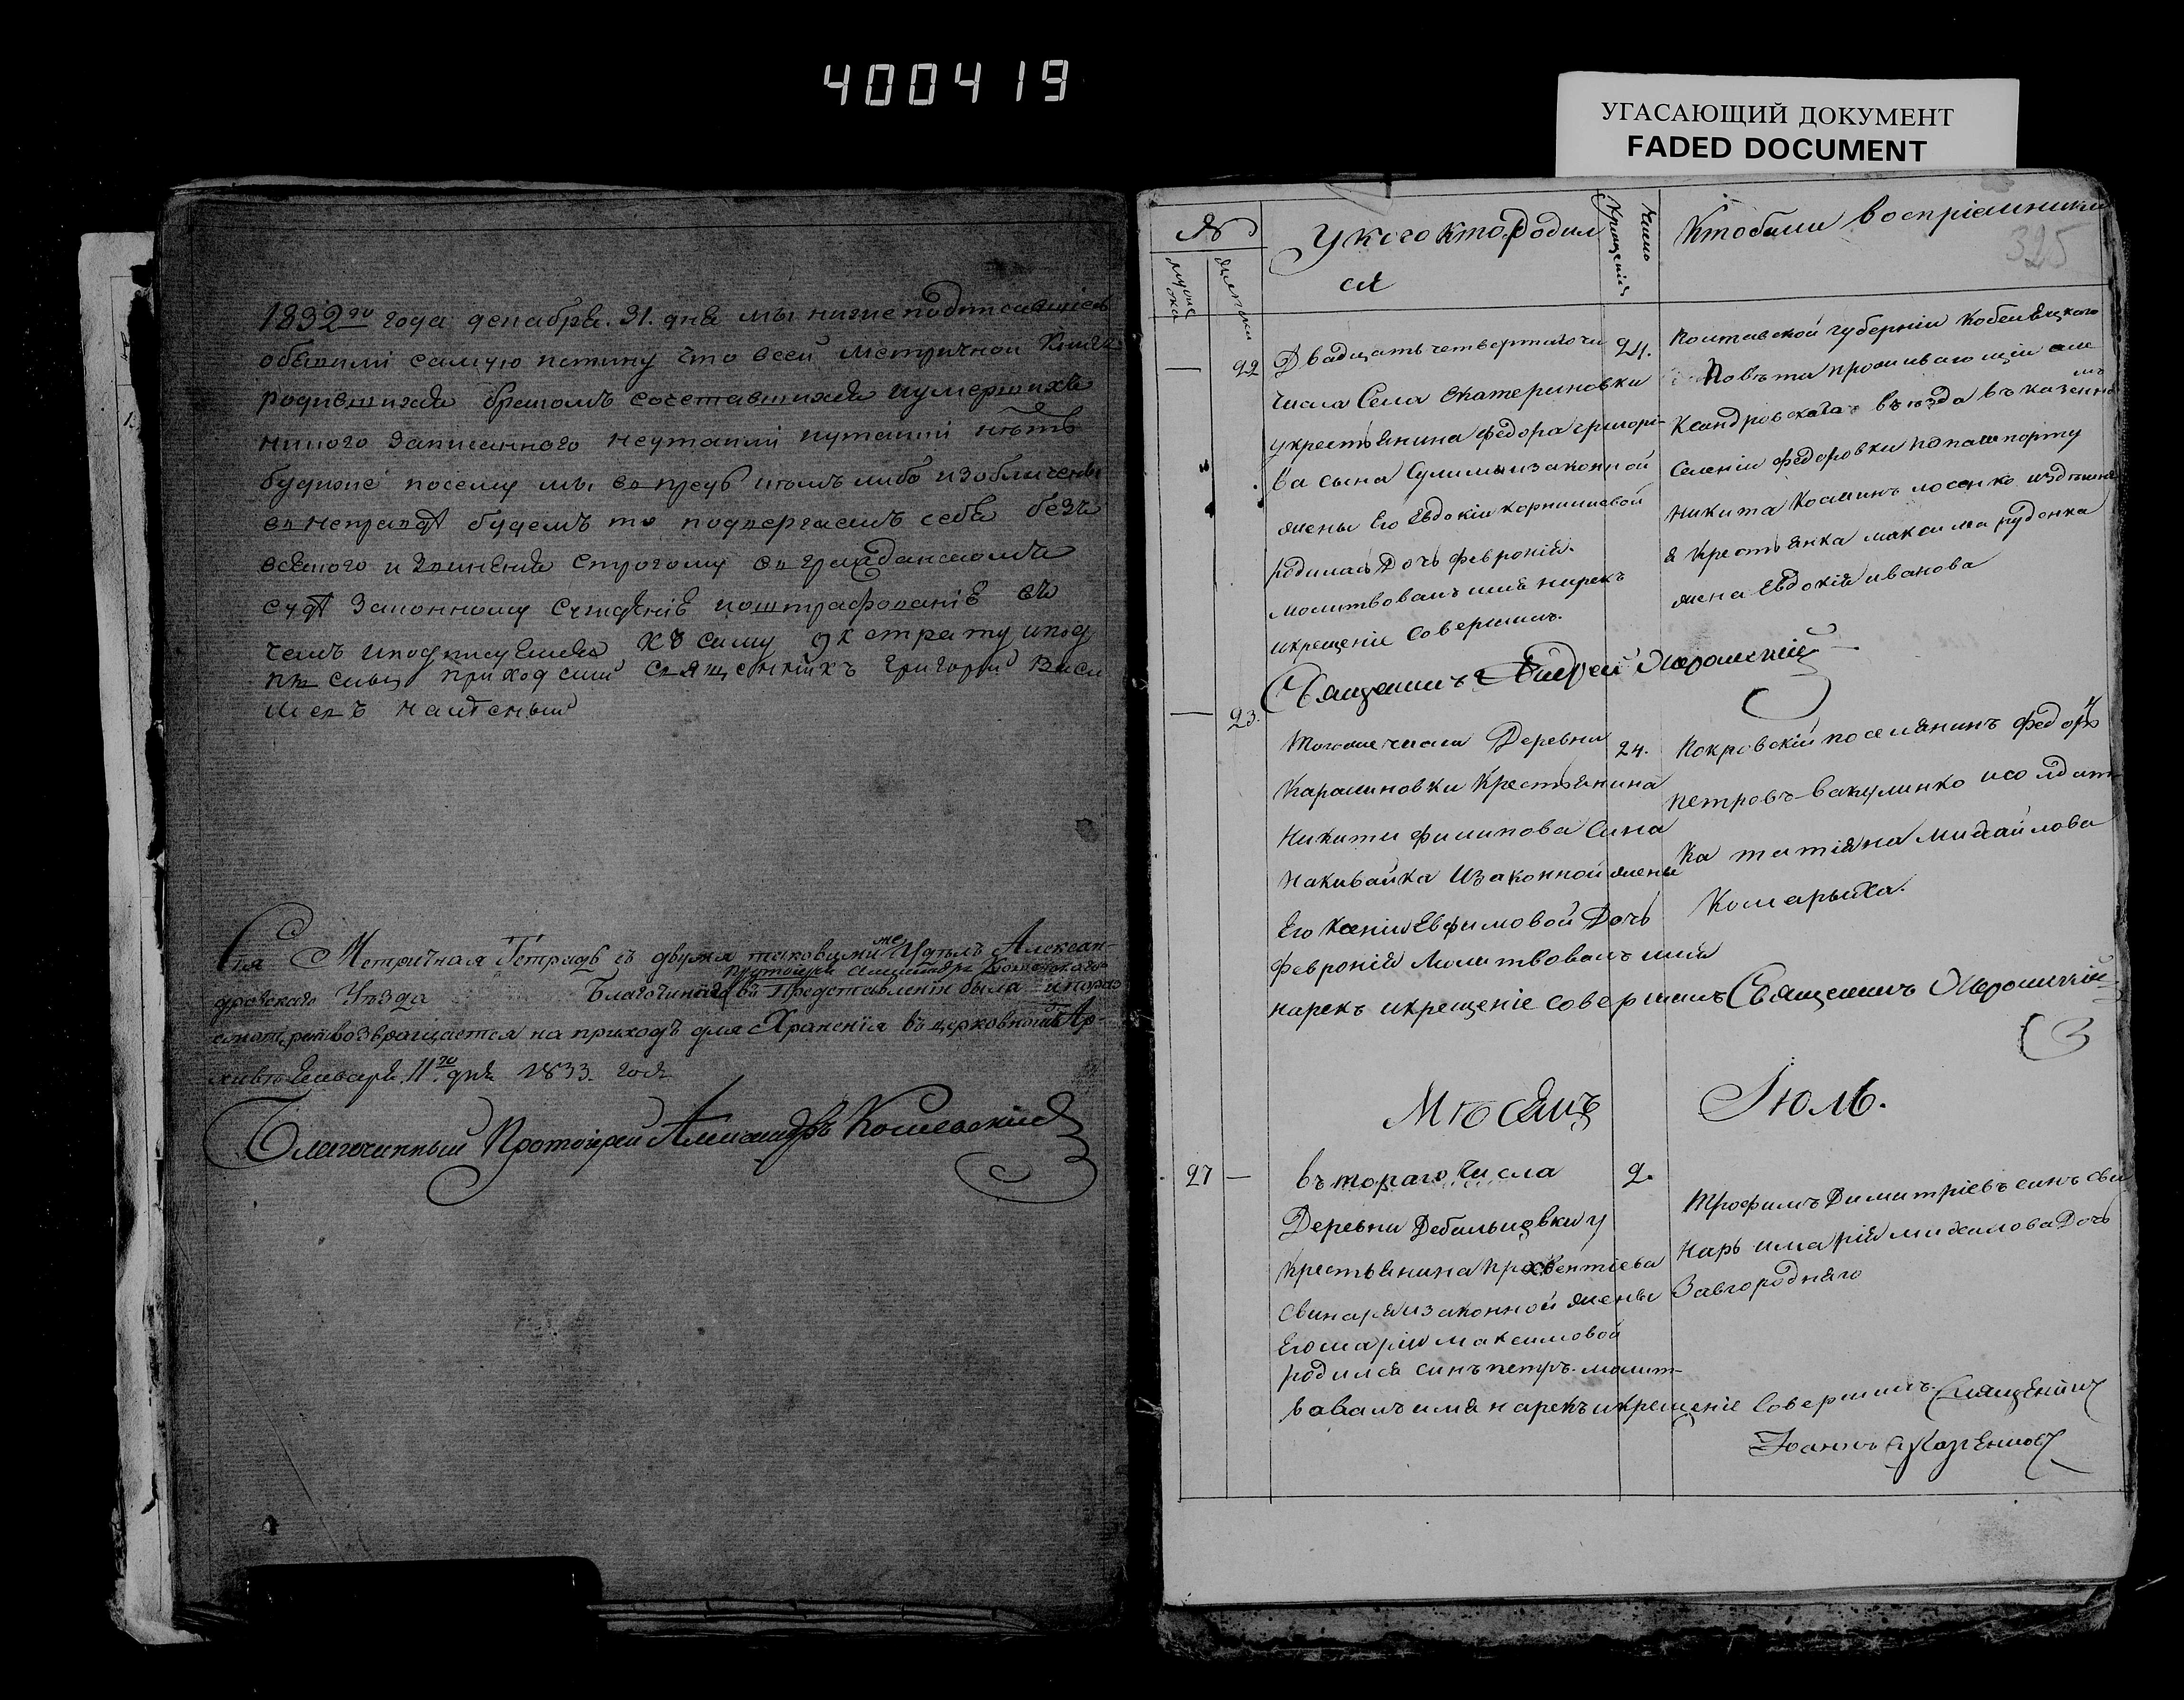 400419
УГАСАЮЩИЙ ДОКУМЕНТ
FADED DOCUMENT
1832го года декабря. 31. дня мы нижеподписавшіесь
самую истину что всей метричной Книги
родившихся бракомъ сочетавшихся иумершихъ
никого записанного неутаили нѣтъ
посему мы
будемъ то подвергаемъ себя безъ
всякого строгому въ гражданскомъ
судѣ законному сужденію въ
чемъ иподписуемся Къ симу
приходскій священникъ григорій
Сія Метричная Тетрадь съ двумя таковыми же Уѣздъ Алексан-
дровскаго Уѣзда Благочиннаго въ Представленіи была
возвращается на приходъ для Храненія въ церковномъ Ар-
хивѣ Января 11го дня 1833. года
Благочинный Протоіерей Александръ Кошевскій
№
мужеска
женска
У кого кто Родил
ся
Число
крещенія
Кто были воспріемники
325
— 22
Двадцать четвертаго чи
числа Села Екатериновки
укрестьянина федора григорі-
ва сына Сулимы изаконной
жены Его Евдокіи корниліевой
родилась Дочь февронія.
молитвовалъ имя нарекъ
икрещеніе Совершилъ.
24.
Полтавской губерніи Кобеляцкого
Повѣта проживающій але
ксандровскаго въезда въ казенномъ
селеніи федоровки попашпорту
никита Косминъ носенко издѣшня
я крестьянка максима руденка
жена Евдокія иванова
Священникъ Андрей
— 23.
Тогоже числа Деревни
Каралиновки Крестьянина
Никиты филипова Сына
Накивайка Изаконной жены
Его Ксеніи Евфимовой Дочь
февронія Молитвовалъ имя
нарекъ икрещеніе совершилъ Священникъ
24.
Покровскій поселянинъ федоръ
петровъ вакулинко исолдат-
ка татіяна михайлова
Комарыха.
Мѣсяцъ Іюль.
27 —
вътораго Числа
Деревни Дебальцовки у
крестьянина
Свинаря изаконной жены
Его маріи максимовой
родился сынъ петръ молит-
вовалъ имя нарекъ икрещеніе Совершилъ Священникъ
Іоаннъ
2.
Трофимъ Димитріевъ синъ сви
нарь имарія михаилова Дочь
Завгородняго